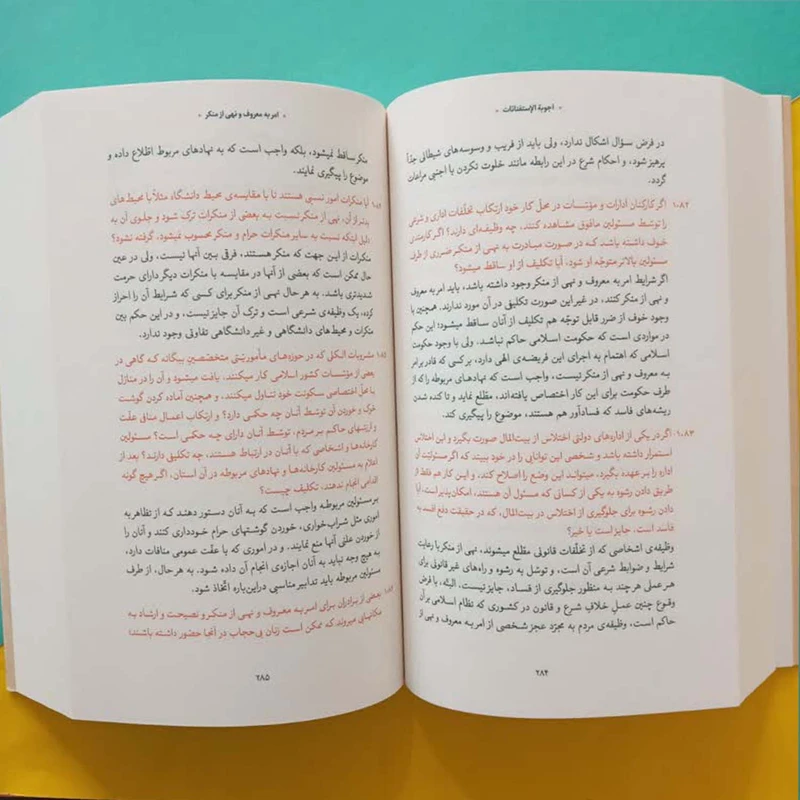 اجوبة الإستفتائات
در فرض سؤال اشکال ندارد، ولی باید از فریب و وسوسه‌های شیطانی جدّاً
پرهیز شود، و احکام شرع در این رابطه مانند خلوت نکردن با اجنبی مراعات
گردد.
۱۰۸۲ اگر کارکنان ادارات و مؤسّسات در محلّ کار خود ارتکاب تخلّفات اداری و شرعی
را توسّط مسئولین مافوق مشاهده کنند، چه وظیفه‌ای دارند؟ اگر کارمندی
خوف داشته باشد که در صورت مبادرت به نهی از منکر ضرری از طرف
مسئولین بالاتر متوجّه او شود، آیا تکلیف از او ساقط میشود؟
اگر شرایط امر به معروف و نهی از منکر وجود داشته باشد، باید امر به معروف
و نهی از منکر کنند، در غیر این صورت تکلیفی در آن مورد ندارند. همچنین با
وجود خوف از ضرر قابل توجّه هم تکلیف از آنان ساقط میشود؛ این حکم
در مواردی است که حکومت اسلامی حاکم نباشد. ولی با وجود حکومت
اسلامی که اهتمام به اجرای این فریضه‌ی الهی دارد، بر کسی که قادر بر امر
به معروف و نهی از منکر نیست، واجب است که نهادهای مربوطه را که از
طرف حکومت برای این کار اختصاص یافته‌اند، مطّلع نماید و تا کنده شدن
ریشه‌های فاسد که فسادآور هم هستند، موضوع را پیگیری کند.
۱۰۸۳ اگر در یکی از اداره‌های دولتی اختلاس از بیت‌المال صورت بگیرد و این اختلاس
استمرار داشته باشد و شخصی این توانایی را در خود ببیند که اگر مسئولیّت آن
اداره را بر عهده بگیرد، میتواند این وضع را اصلاح کند، و این کار هم فقط از
طریق دادن رشوه به یکی از کسانی که مسئول آن هستند، امکان‌پذیر است، آیا
دادن رشوه برای جلوگیری از اختلاس در بیت‌المال، که در حقیقت دفع افسد به
فاسد است، جایز است یا خیر؟
وظیفه‌ی اشخاصی که از تخلّفات قانونی مطّلع میشوند، نهی از منکر با رعایت
شرایط و ضوابط شرعی آن است، و توسّل به رشوه و راه‌های غیر قانونی برای
هر عملی هر چند به منظور جلوگیری از فساد، جایز نیست. البتّه، با فرض
وقوع چنین عملِ خلافِ شرع و قانون در کشوری که نظام اسلامی بر آن
حاکم است، وظیفه‌ی مردم به مجرّد عجز شخصی از امر به معروف و نهی از
۲۸۴
امر به معروف و نهی از منکر
منکر ساقط نمیشود، بلکه واجب است که به نهادهای مربوط اطّلاع داده و
موضوع را پیگیری نمایند.
آیا منکرات امور نسبی هستند تا با مقایسه‌ی محیط دانشگاه مثلاً با محیط‌های
بدتر از آن، نهی از منکر نسبت به بعضی از منکرات ترک شود و جلوی آن به
دلیل اینکه نسبت به سایر منکرات حرام و منکر محسوب نمیشود، گرفته نشود؟
منکرات از این جهت که منکر هستند، فرقی بین آنها نیست، ولی در عین
حال ممکن است که بعضی از آنها در مقایسه با منکرات دیگر دارای حرمت
شدیدتری باشد. به هر حال نهی از منکر برای کسی که شرایط آن را احراز
کرده، یک وظیفه‌ی شرعی است و ترک آن جایز نیست، و در این حکم بین
منکرات و محیط‌های دانشگاهی و غیر دانشگاهی تفاوتی وجود ندارد.
مشروبات الکلی که در حوزه‌های مأموریّتی متخصّصین بیگانه که گاهی در
بعضی از مؤسّسات کشور اسلامی کار میکنند، یافت میشود و آن را در منازل
یا محلّ اختصاصی سکونت خود تناول میکنند، و همچنین آماده کردن گوشت
خوک و خوردن آن توسّط آنان چه حکمی دارد؟ و ارتکاب اعمال منافی عفّت
و ارزشهای حاکم بر مردم، توسّط آنان دارای چه حکمی است؟ مسئولین
کارخانه‌ها و اشخاصی که با آنان در ارتباط هستند، چه تکلیفی دارند؟ بعد از
اعلام به مسئولین کارخانه‌ها و نهادهای مربوطه در آن استان، اگر هیچ گونه
اقدامی انجام ندهند، تکلیف چیست؟
بر مسئولین مربوطه واجب است که به آنان دستور دهند که از تظاهر به
اموری مثل شراب‌خواری، خوردن گوشتهای حرام خودداری کنند و آنان را
از خوردن علنی آنها منع نمایند. و در اموری که با عفّت عمومی منافات دارد،
به هیچ وجه نباید به آنان اجازه‌ی انجام آن داده شود. به هر حال، از طرف
مسئولین مربوطه باید تدابیر مناسبی در این‌باره اتّخاذ شود.
بعضی از برادران برای امر به معروف و نهی از منکر و نصیحت و ارشاد به
مکانهایی میروند که ممکن است زنان بی‌حجاب در آنجا حضور داشته باشند؛
۲۸۵